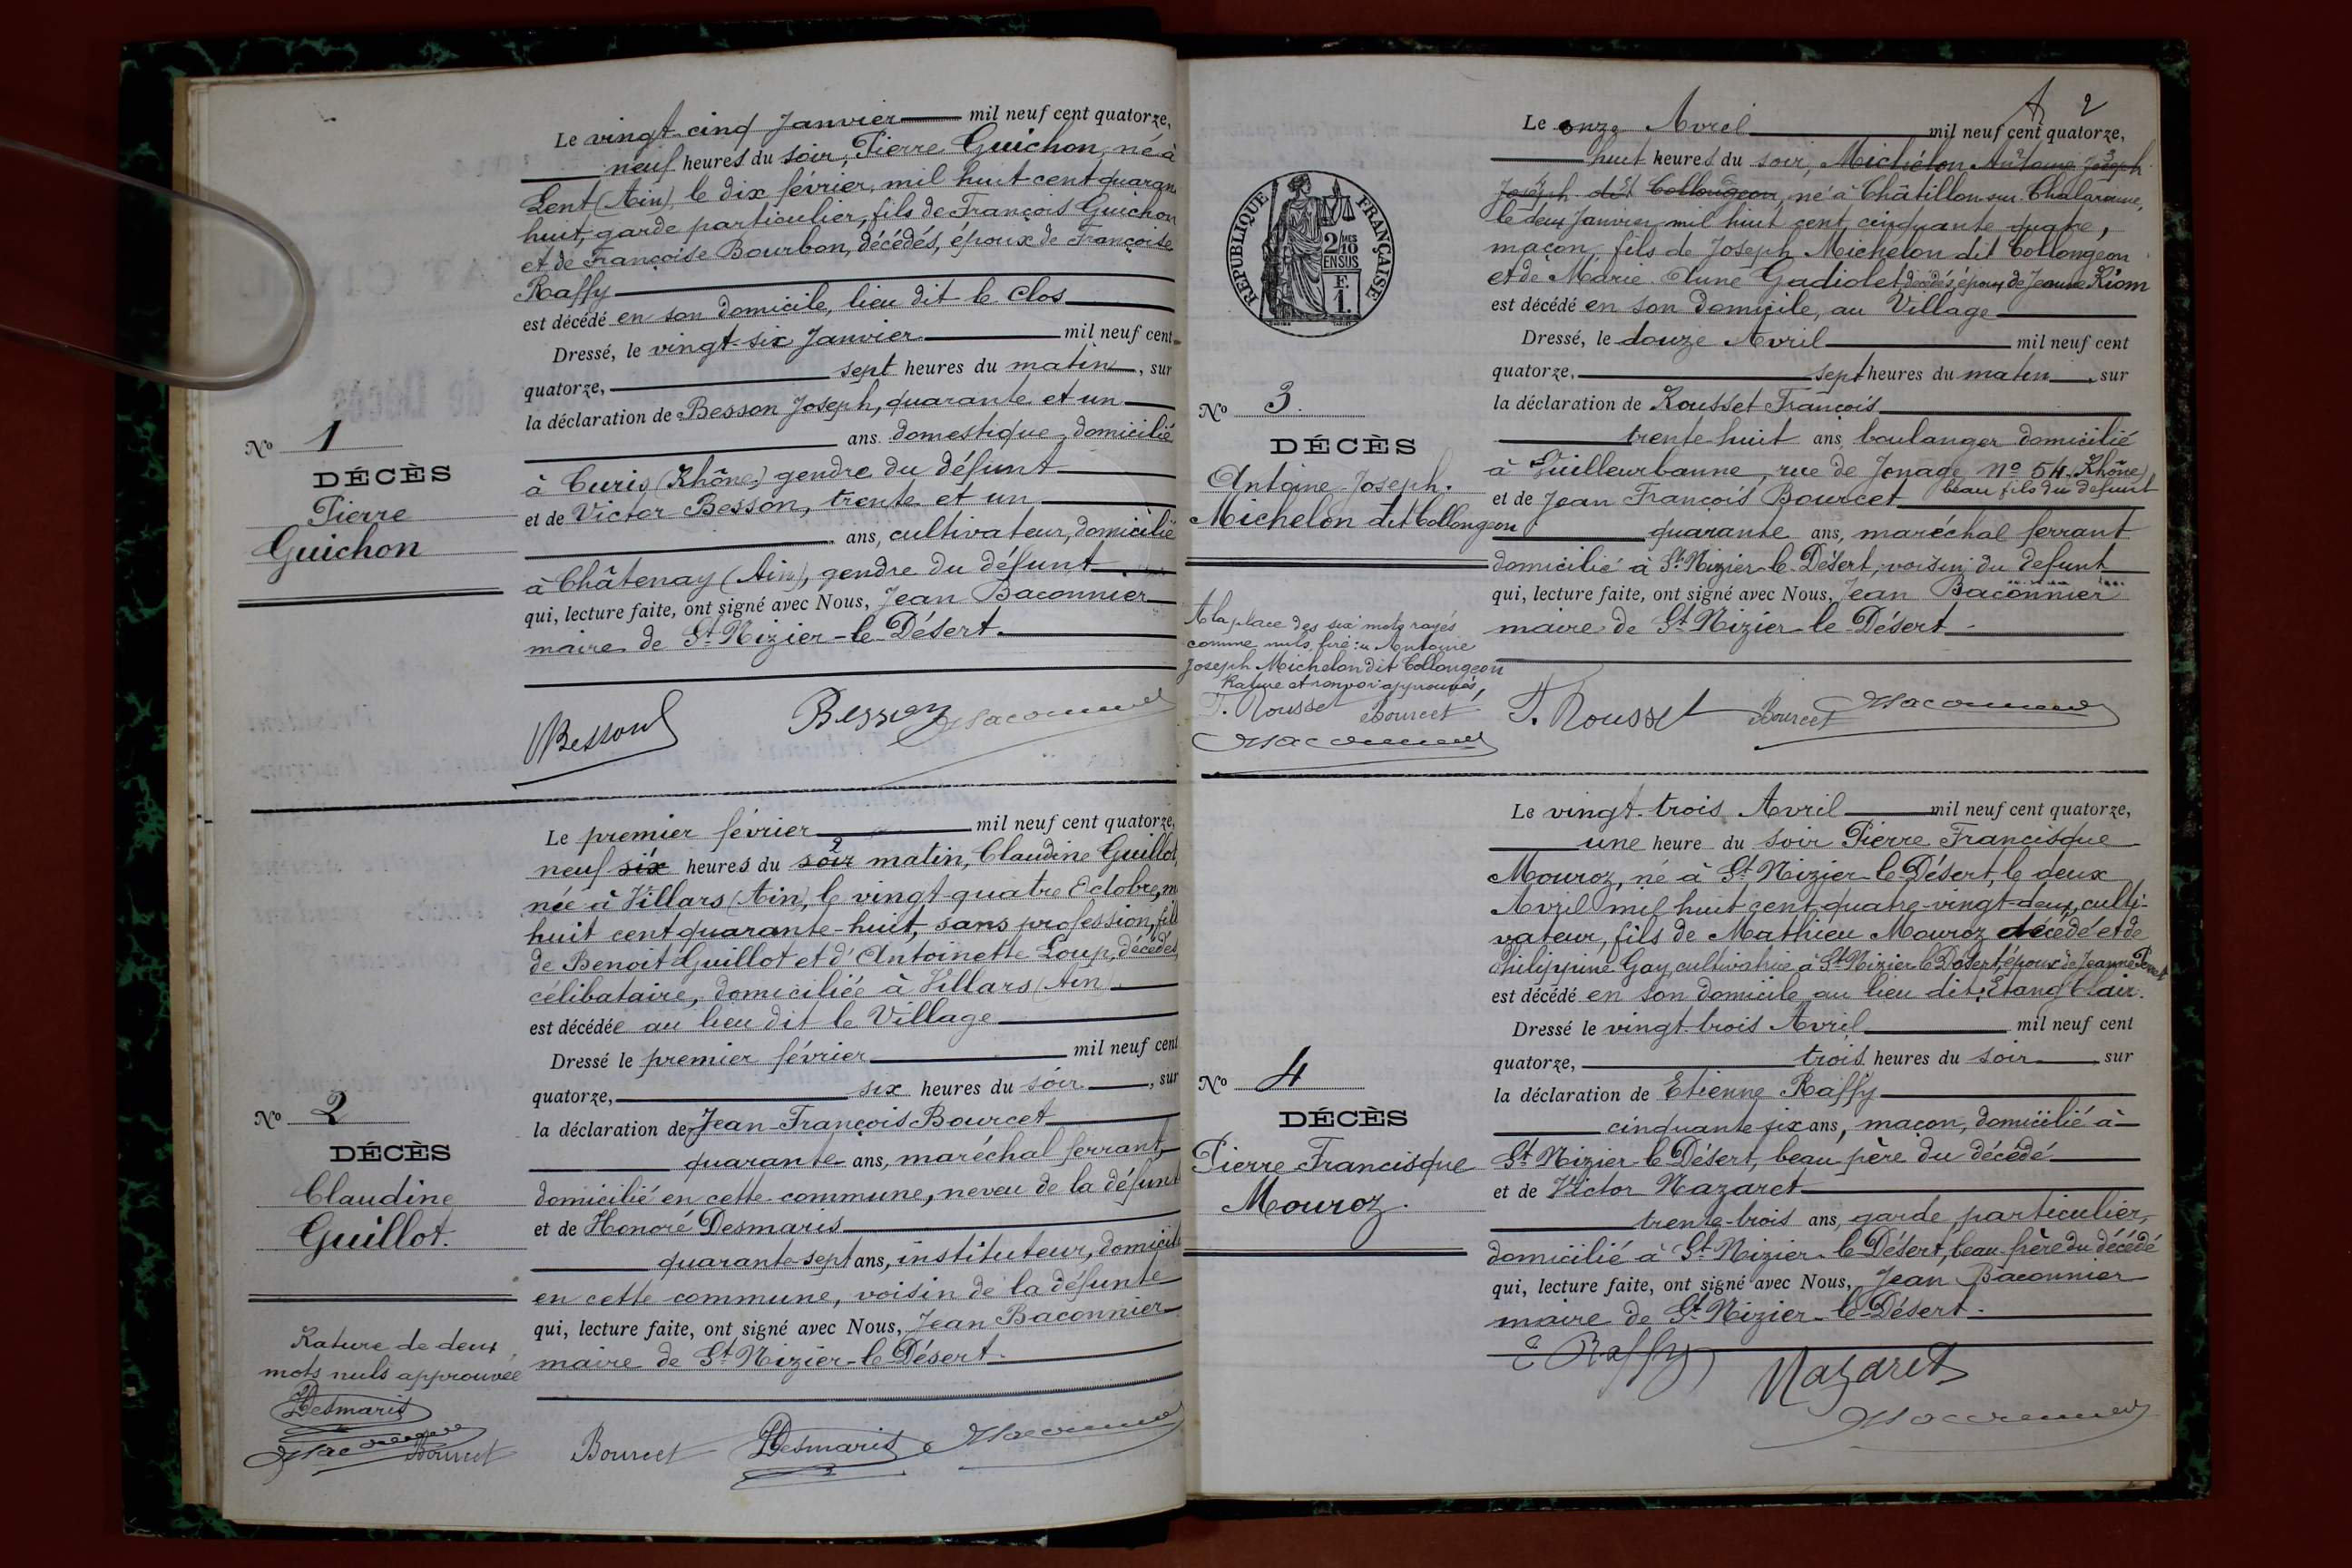 Le vingt-cinq Janvier mil neuf cent quatorze,
neuf heures du soir, Pierre Guichon, né à
Lent (Ain), le dix février, mil huit cent quaran
huit, garde particulier, fils de François Guichon
et de Françoise Bourbon, décédés, époux de Françoise
Raffy
est décédé en son domicile, lieu dit le Clos
Dressé, le vingt-six Janvier mil neuf cent
quatorze, sept heures du matin, sur
la déclaration de Besson Joseph, quarante et un
ans domestique, domicilié
à Curis (Rhône) gendre du défunt
et de Victor Besson, trente et un
ans, cultivateur, domicilié
à Châtenay (Ain), gendre du défunt
qui, lecture faite, ont signé avec Nous, Jean Baconnier
maire de St Nizier-le-Désert.
No 1
DÉCÈS
Pierre
Guichon
VBesson Besson JBaconnier
Le premier février mil neuf cent quatorze,
neuf six heures du soir matin, Claudine Guillot,
née à Villars (Ain), le vingt-quatre Octobre, m
huit cent quarante-huit, sans profession, fill
de Benoit Guillot et d'Antoinette Loup, décédés,
célibataire, domiciliée à Villars (Ain)
est décédée au lieu dit le Village
Dressé le premier février mil neuf cent
quatorze, six heures du soir, sur
la déclaration de Jean-François Bourcet
quarante ans, maréchal ferrant,
domicilié en cette commune, neveu de la défunt
et de Honoré Desmaris
quarante-sept ans, instituteur, domicili
en cette commune, voisin de la défunte
qui, lecture faite, ont signé avec Nous, Jean Baconnier
maire de St Nizier-le-Désert.
No 2
DÉCÈS
Claudine
Guillot.
Rature de deux
mots nuls approuvée
HDesmaris
JBaconnier Bourcet
Bourcet HDesmaris JBaconnier
2
RÉPUBLIQUE FRANÇAISE
2/10 MES
EN SUS
F.
1.
Le onze Avril mil neuf cent quatorze,
huit heures du soir, Michélon Antoine Joseph
Joseph dit Collongeon, né à Châtillon-sur-Chalaronne,
le deux Janvier mil huit cent cinquante quatre,
maçon, fils de Joseph Michelon dit Collongeon
et de Marie Anne Gadiolet, décédés, époux de Jeanne Riom
est décédé en son domicile, au Village
Dressé, le douze Avril mil neuf cent
quatorze, sept heures du matin, sur
la déclaration de Rousset François
trente huit ans, boulanger domicilié
à Vuilleurbanne, rue de Jonage No 54 (Rhône),
beau fils du defunt
et de Jean François Bourcet
quarante ans, maréchal ferrant
domicilié à St Nizier-le-Désert, voisin du defunt
qui, lecture faite, ont signé avec Nous, Jean Baconnier
maire de St Nizier-le-Désert
No 3.
DÉCÈS
Antoine-Joseph.
Michelon dit Collongeon
A la place des six mots rayés
comme nuls, lire: « Antoine
Joseph Michelon dit Collongeon
Rature et renvoi approuvés,
F. Rousset Bourcet
JBaconnier
F. Rousset Bourcet JBaconnier
Le vingt-trois Avril mil neuf cent quatorze,
une heure du soir Pierre Francisque
Mouroz, né à St Nizier-le-Désert, le deux
Avril mil huit cent quatre-vingt-deux, culti-
vateur, fils de Mathieu Mouroz décédé et de
Philippine Gay, cultivatrice à St Nizier-le-Désert, époux de Jeanne
est décédé en son domicile au lieu dit : Etang Clair.
Dressé le vingt-trois Avril mil neuf cent
quatorze, trois heures du soir sur
la déclaration de Etienne Raffy
cinquante six ans, maçon, domicilié à
St Nizier-le-Désert, beau père du décédé
et de Victor Nazaret
trente-trois ans, garde particulier,
domicilié à St Nizier-le-Désert, beau-frère du décédé
qui, lecture faite, ont signé avec Nous, Jean Baconnier
maire de St Nizier-le-Désert.
No 4
DÉCÈS
Pierre Francisque
Mouroz.
E Raffy Nazaret
JBaconnier